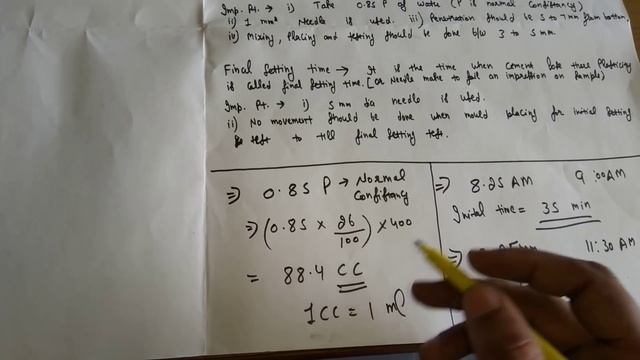 Imp. Pt. → i) Take 0.85 P of water (P is normal Confiftancy)
ii) 1 mm² Needle is used. iii) Penetration should be 5 to 7 mm from bottom.
iv) Mixing, Placing and testing should be done b/w 3 to 5 mm.
Final Setting time → It is the time when Cement lose there Plasticity
is called final setting time. [or Needle make to fail an impression on Sample)
Imp. Pt. → i) 5 mm dia needle is used.
ii) No movement should be done when mould placing for initial setting
test to till final setting test.
⇒ 0.85 P → Normal
Confiftancy
⇒ (0.85 × 26/100) × 400
= 88.4 CC
1CC = 1 ml
⇒ 8.25 AM 9:00 AM
Initial time = 35 min
⇒ 11:30 AM